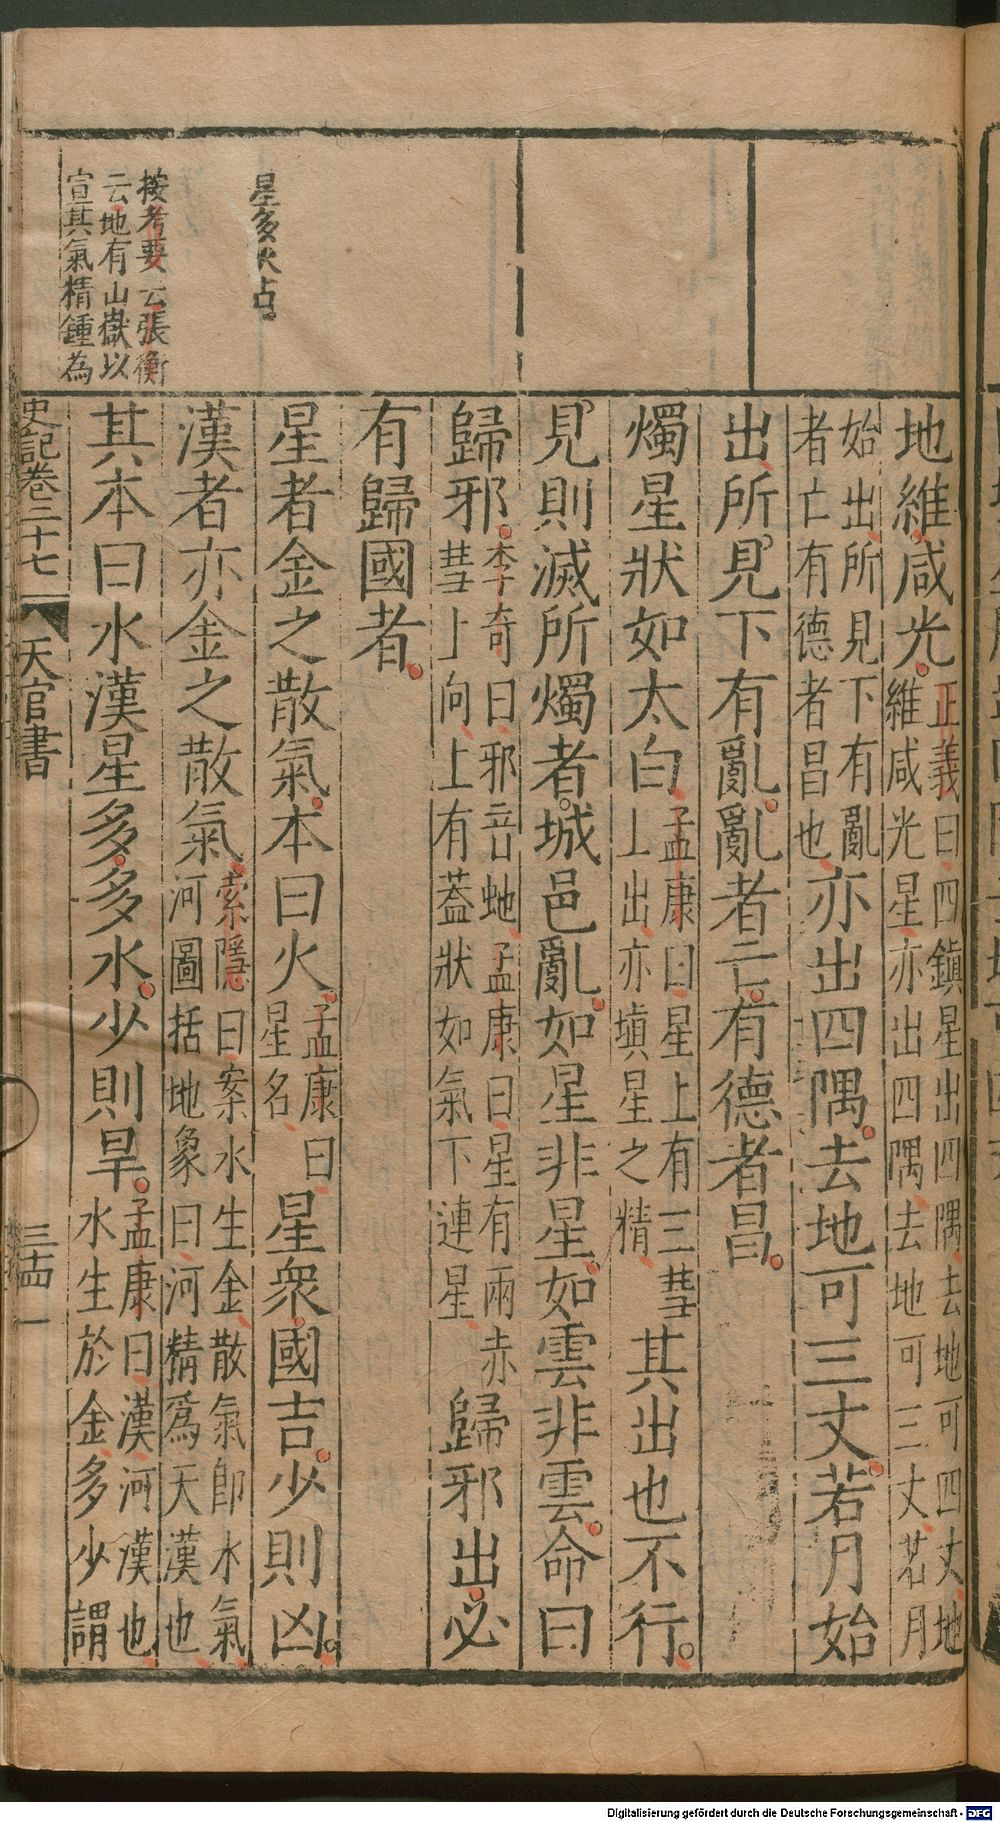 地維咸光。正義曰四鎮星出四隅去地可四丈地
維咸光星亦出四隅去地可三丈若月
始出所見下有亂
者亡有德者昌也亦出四隅。去地可三丈。若月始
出所見下有亂。亂者亡。有德者昌。
燭星狀如太白孟康曰星上有三彗
上出亦塡星之精其出也不行。
見則滅所燭者。城邑亂。如星非星。如雲非雲。命曰
歸邪。李奇曰邪音虵孟康曰星有兩赤
彗上向上有蓋狀如氣下連星歸邪出必
有歸國者。
星者金之散氣。本曰火。孟康曰
星名星衆國吉。少則凶。
漢者亦金之散氣。索隱曰案水生金散氣卽水氣
河圖括地象曰河精爲天漢也
其本曰水漢星多。多水。少則旱。孟康曰漢河漢也
水生於金多少謂
星多火占。
按考要云張衡
云地有山嶽以
宣其氣精鍾為
史記卷二十七
天官書
三十四
Digitalisierung gefördert durch die Deutsche Forschungsgemeinschaft - DFG